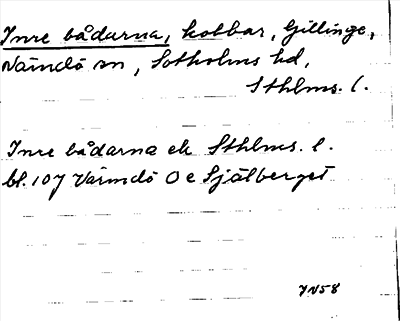 Inre bådarna, kobbar, Gillinge,
Värmdö sn, Sotholms hd,
Sthlms. l.
Inre bådarna ek Sthlms. l.
bl. 107 Värmdö O e Själberget
JN58